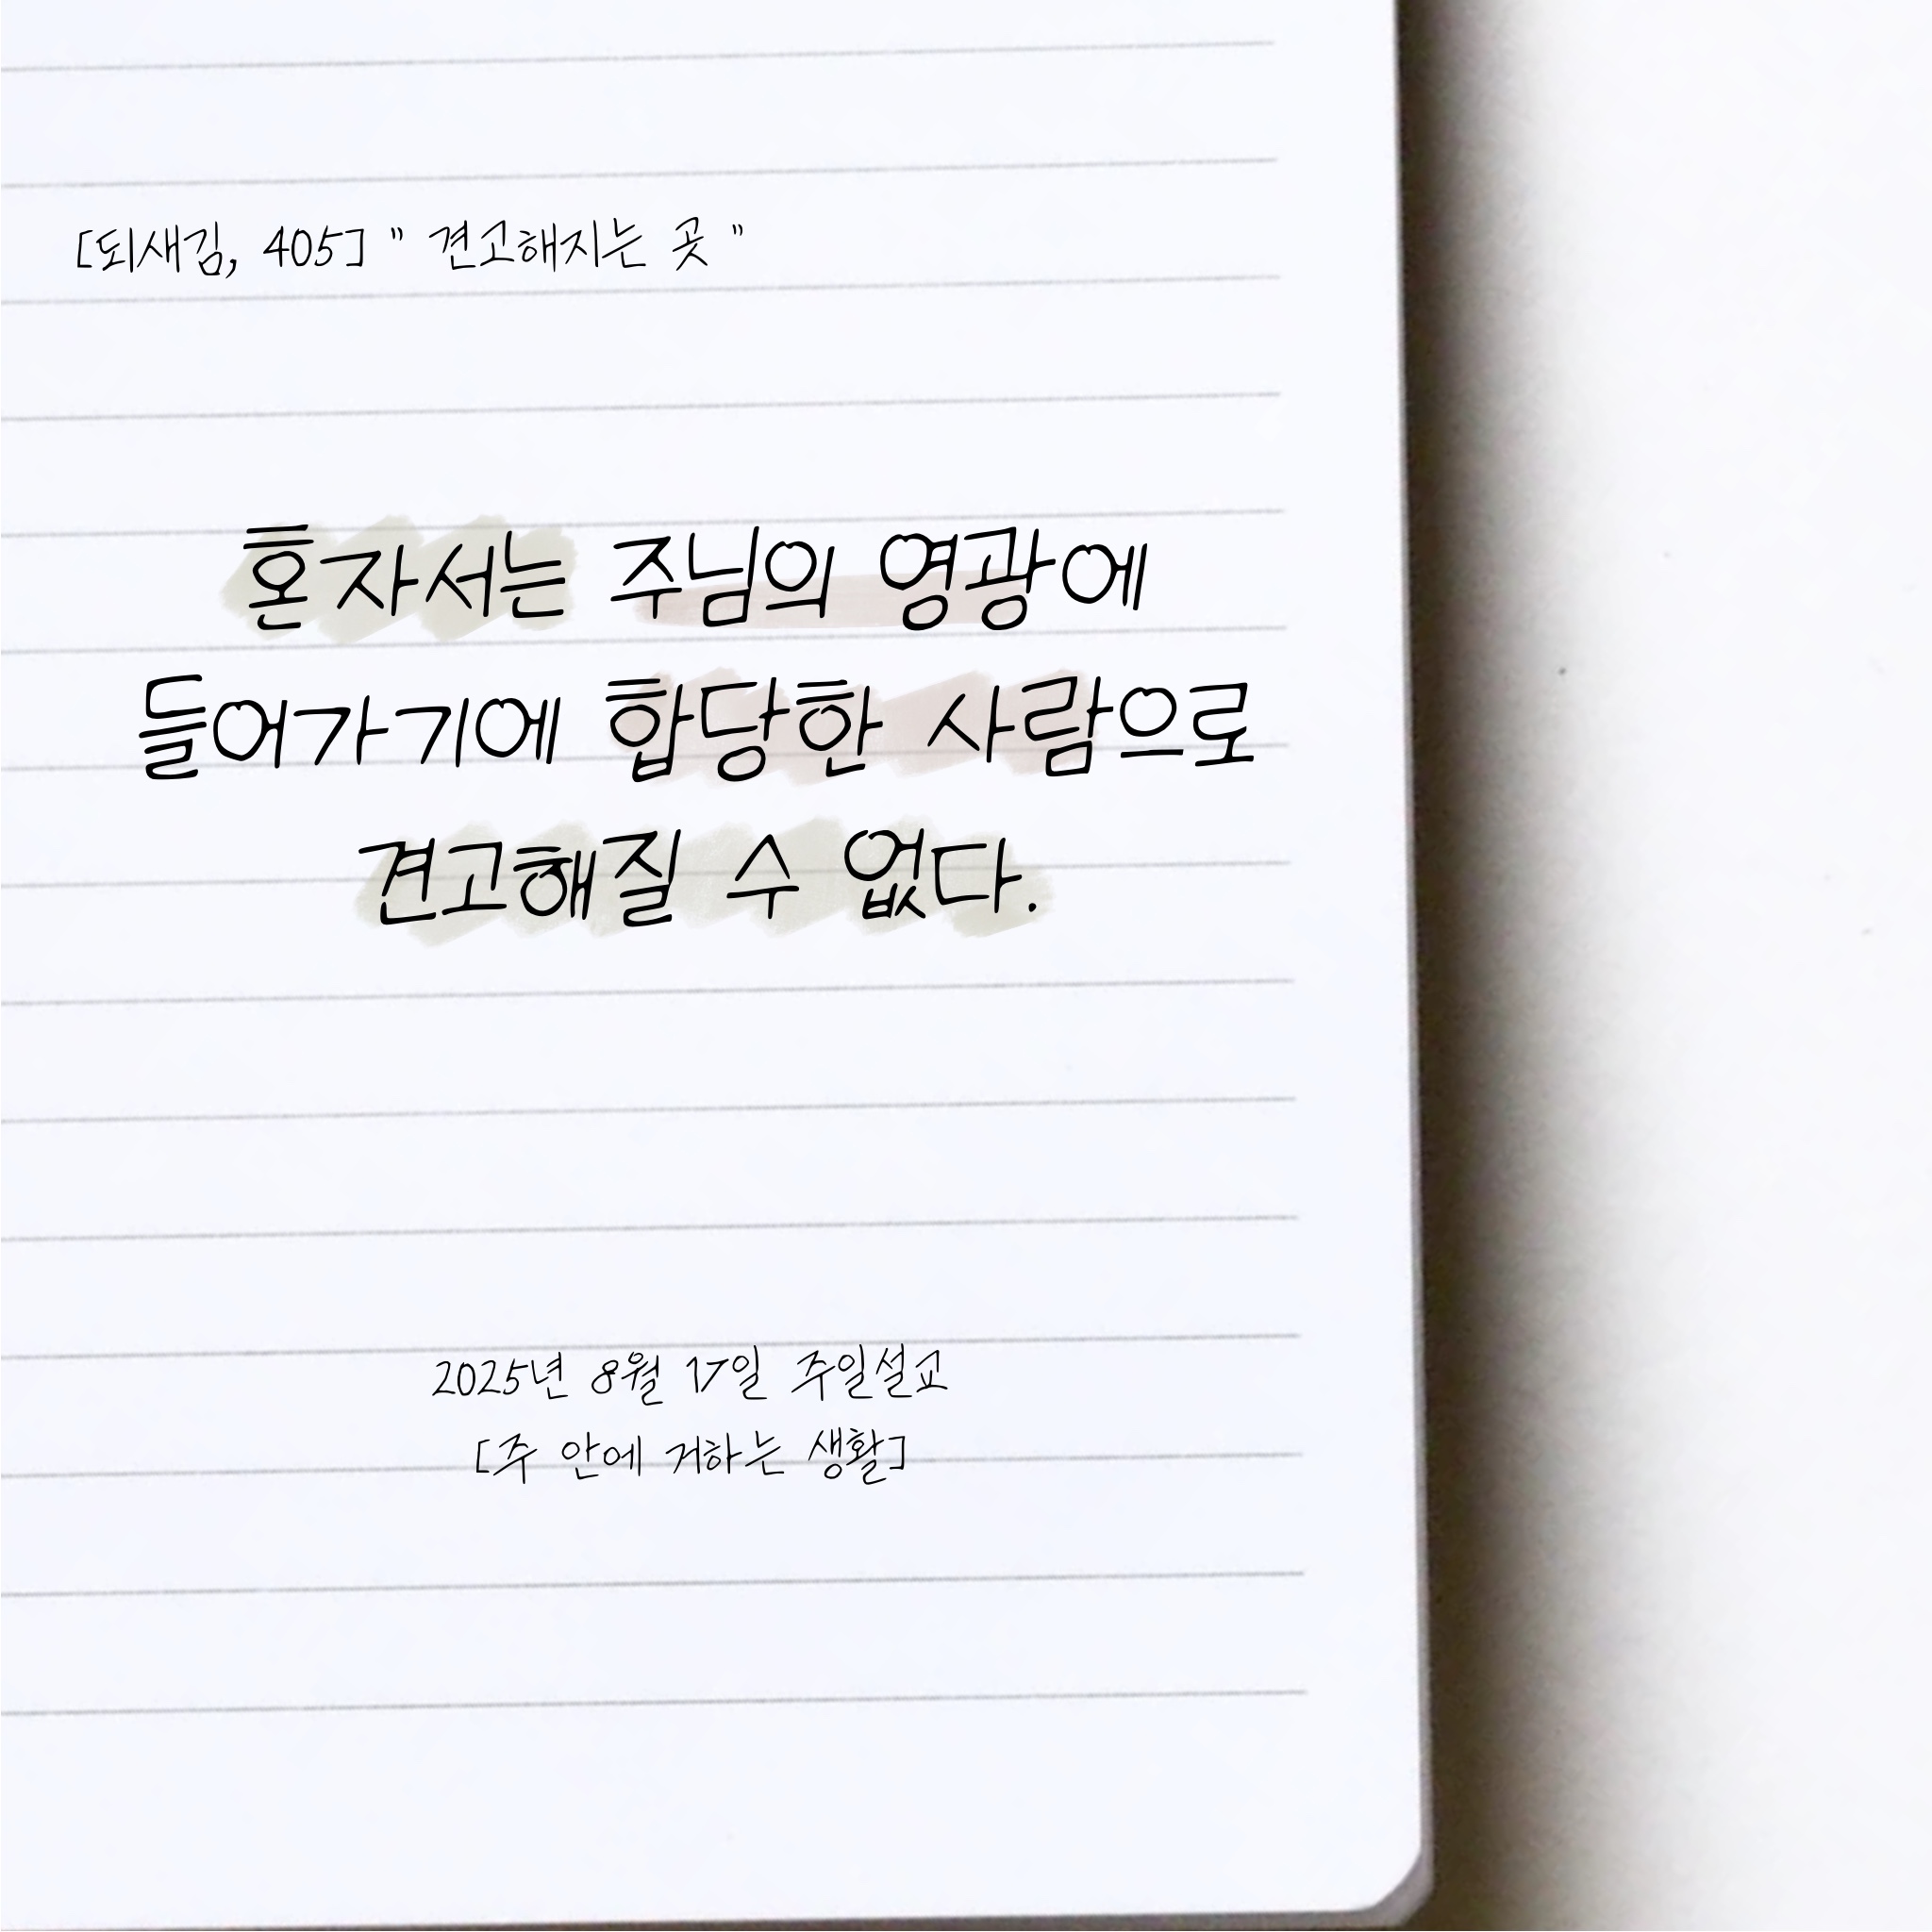 [되새김, 405] " 견고해지는 곳 "
혼자서는 주님의 영광에
들어가기에 합당한 사람으로
견고해질 수 없다.
2025년 8월 17일 주일설교
[주 안에 거하는 생활]